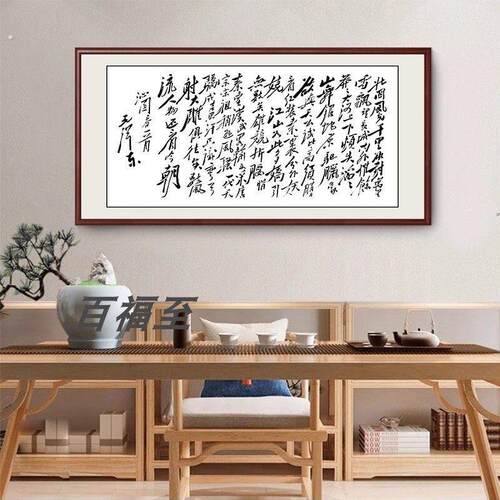 北国风光千里冰封万里
雪飘望长城内外惟馀
莽莽大河上下顿失滔滔
山舞银蛇原驱腊象
欲与天公试比高须晴日
看红装素裹分外妖
娆江山如此多娇引
无数英雄竞折腰惜
秦皇汉武略输文采唐
宗宋祖稍逊风骚一代天
骄成吉思汗只识弯弓
射大雕俱往矣数风
流人物还看今朝
毛泽东
百福至